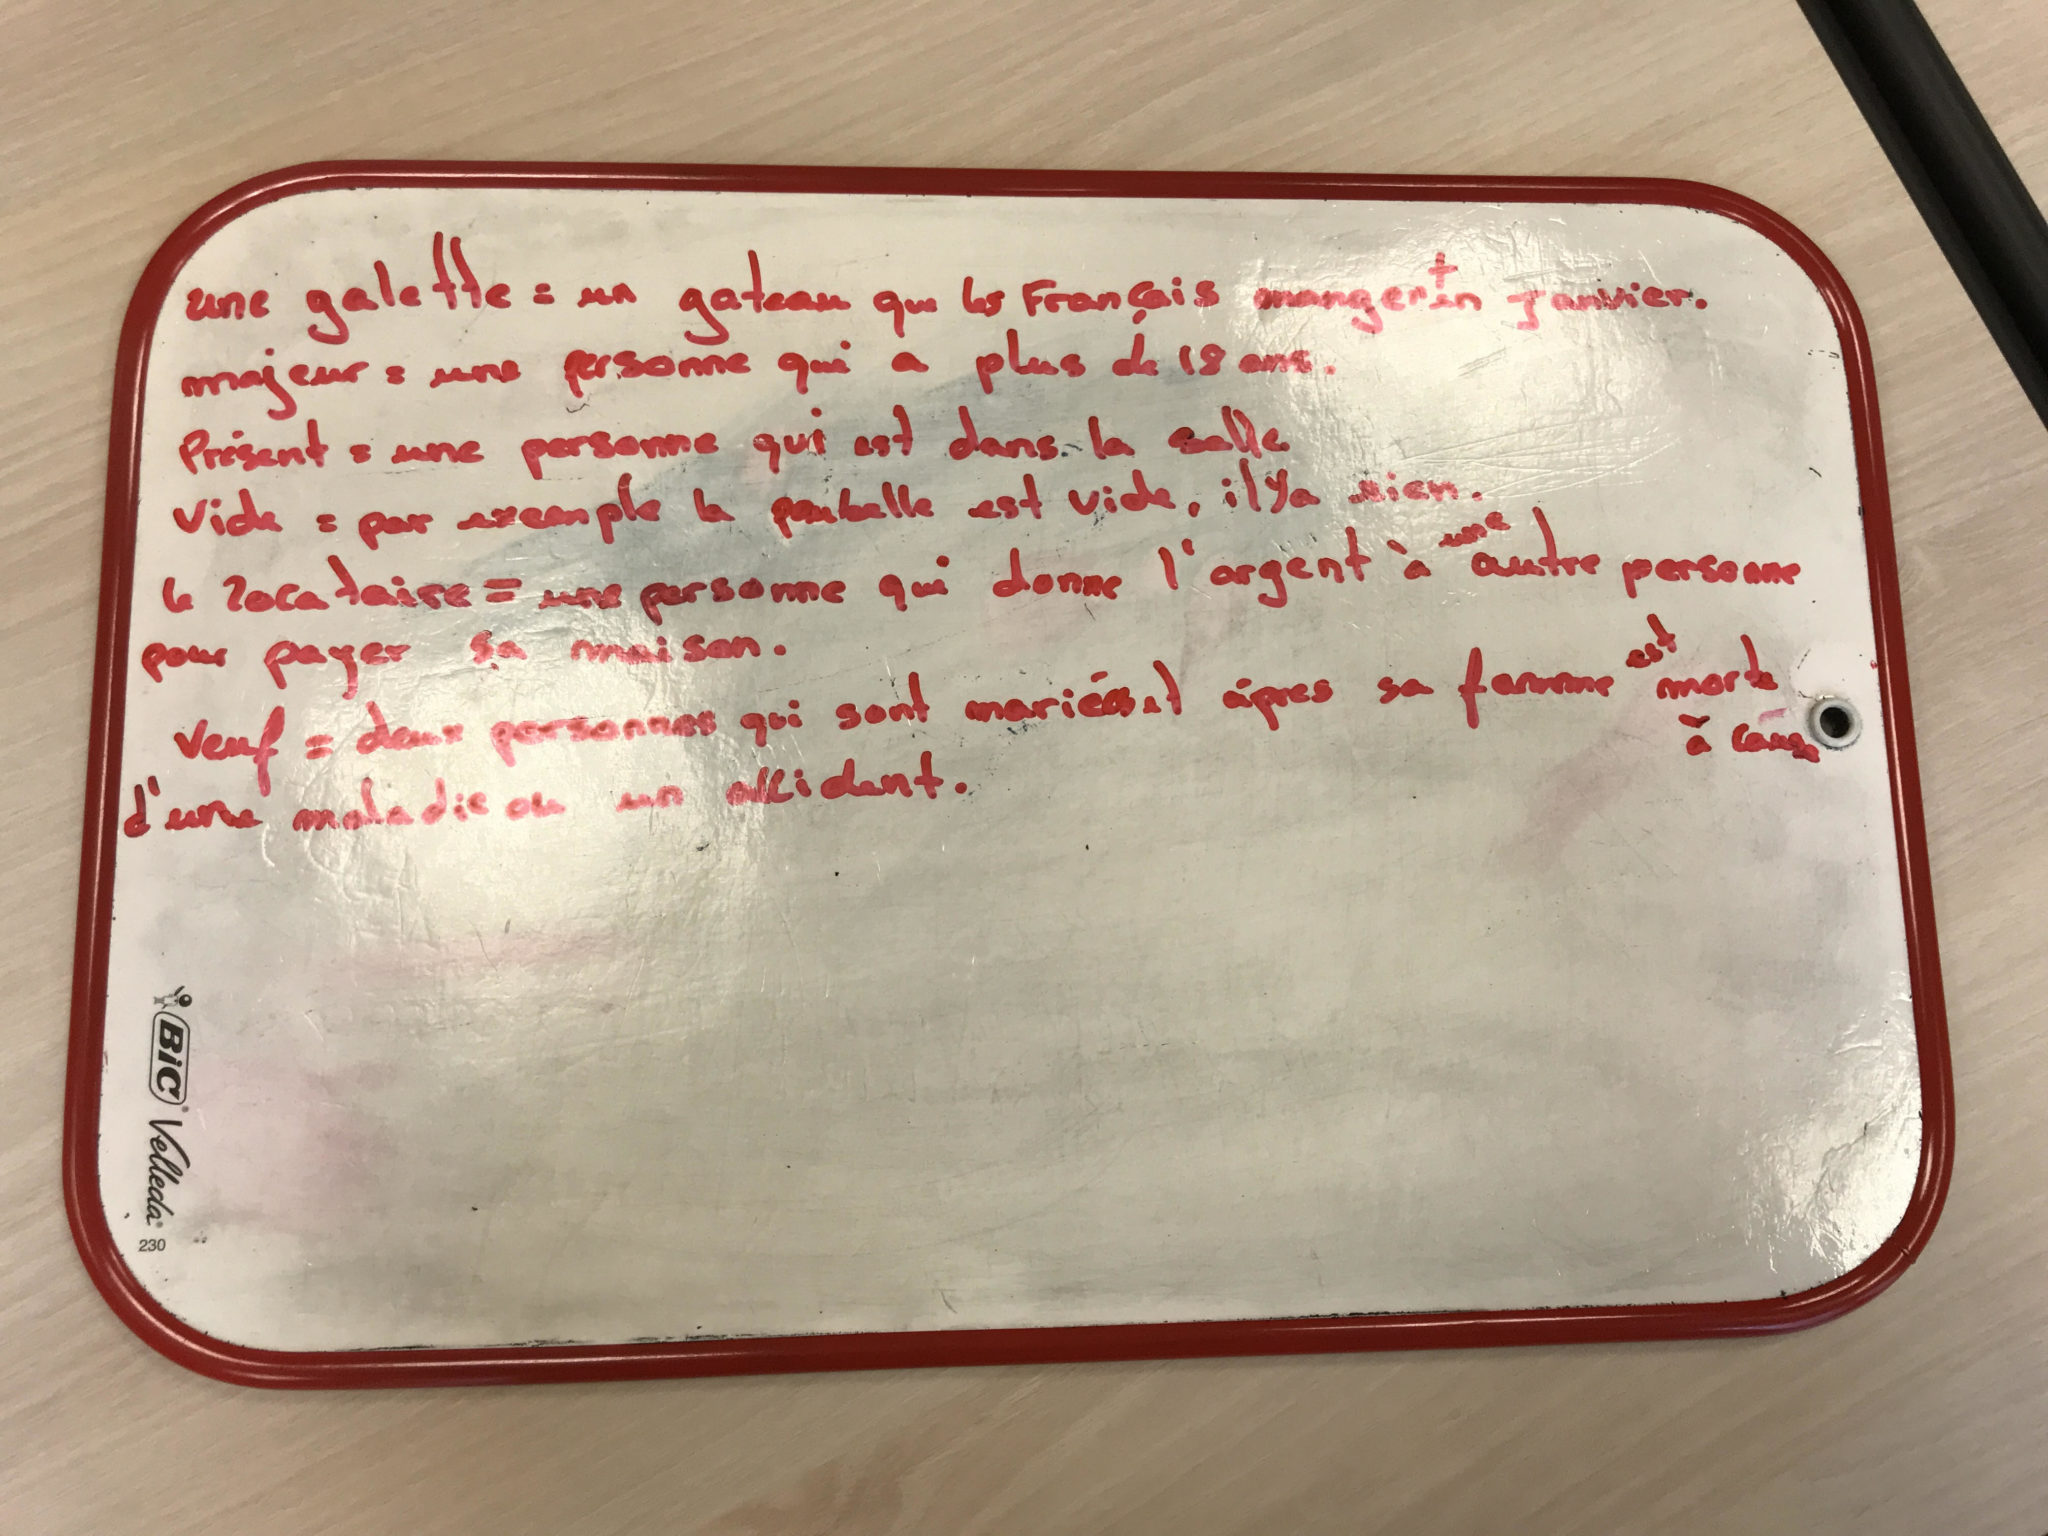 une galette = un gateau que les Français mangent en Janvier.
majeur = une personne qui a plus de 18 ans.
Présent = une personne qui est dans la salle
Vide = par exemple la poubelle est vide, il y a rien.
le locataire = une personne qui donne l'argent à une autre personne
pour payer sa maison.
Veuf = deux personnes qui sont mariées et après sa femme est morte
à cause
d'une maladie ou un accident.
BiC Velleda
230